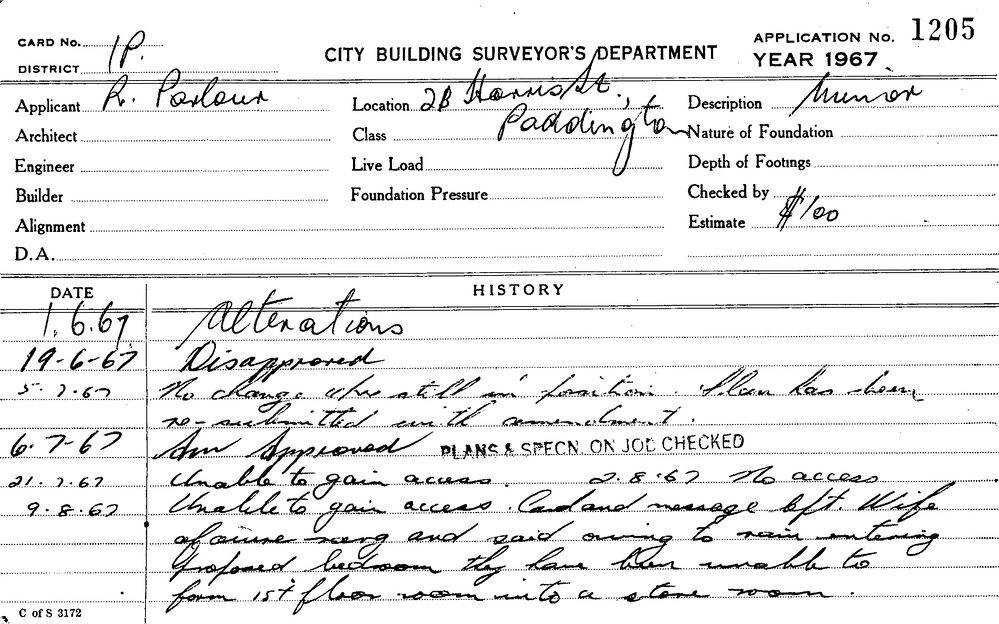 CARD No. 1P.
DISTRICT
CITY BUILDING SURVEYOR'S DEPARTMENT
APPLICATION No. 1205
YEAR 1967
Applicant R. Parlour
Location 2B Harris St., Paddington
Description Minor
Architect
Class
Nature of Foundation
Engineer
Live Load
Depth of Footings
Builder
Foundation Pressure
Checked by
Alignment
Estimate $100
D.A.
DATE HISTORY
1.6.67 Alterations
19-6-67 Disapproved
5.7.67 No change still in position. Plan has been
re-submitted with amendment.
6.7-67 Am Approved PLANS & SPECN. ON JOB CHECKED
21.7.67 Unable to gain access. 2.8.67 No access
9.8.67 Unable to gain access. Card and message left. Wife
and said owing to rain entering
proposed bedroom they have been unable to
form 1st floor room into a store room.
C of S 3172